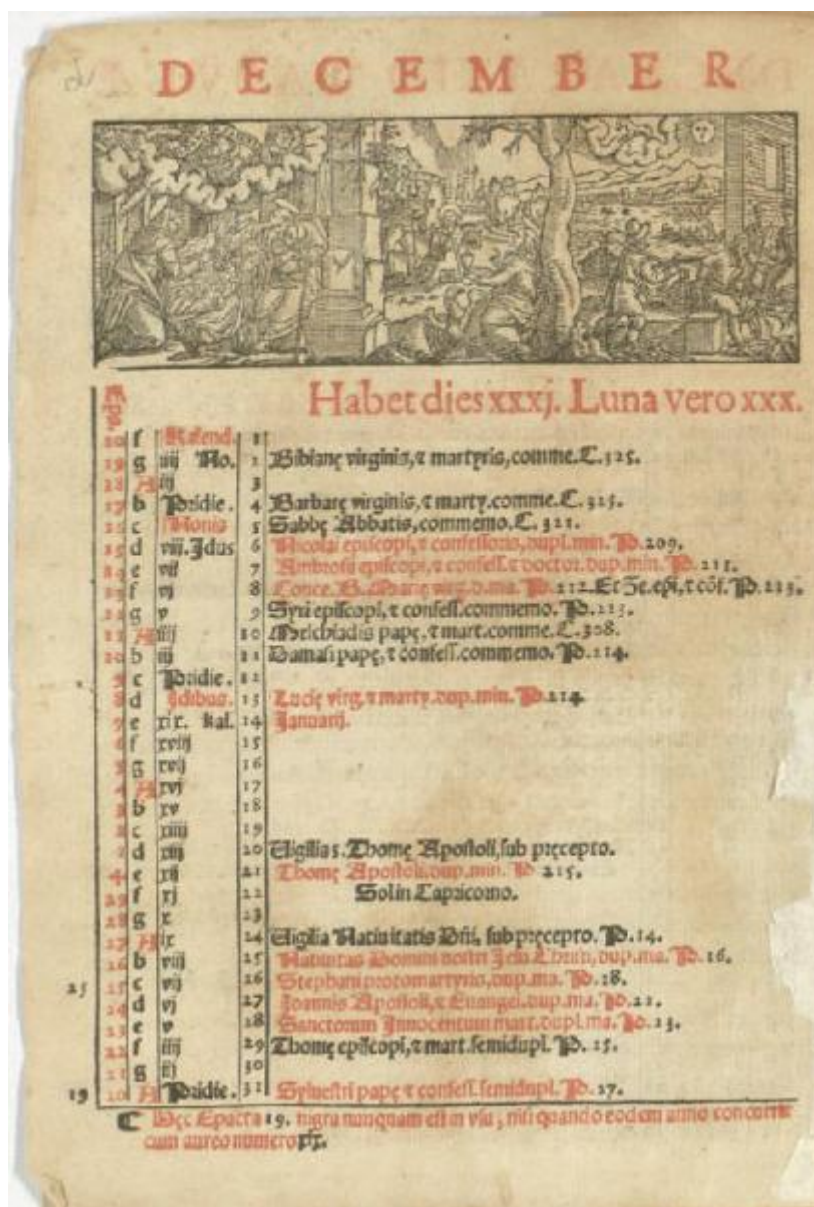 DECEMBER
Habet dies xxxj. Luna vero xxx.
20 f Kalend. 1
19 g iiij No. 2 Bibianę virginis, ⁊ martyris, comme. C. 325.
18 A iij 3
17 b Pridie. 4 Barbarę virginis, ⁊ marty. comme. C. 325.
16 c Nonis 5 Sabbę Abbatis, commemo. C. 321.
15 d viij. Idus 6 Nicolai episcopi, ⁊ confessoris, dupl. min. P. 209.
14 e vij 7 Ambrosij episcopi, ⁊ confess. ⁊ doctor. dup. min. P. 211.
13 f vj 8 Conce. B. Marię virg. d. ma. P. 212. Et Ze. epi, ⁊ cõf. P. 213.
12 g v 9 Syri episcopi, ⁊ confess. commemo. P. 213.
11 A iiij 10 Melchiadis papę, ⁊ mart. comme. C. 308.
10 b iij 11 Damasi papę, ⁊ confess. commemo. P. 214.
9 c Pridie. 12
8 d Idibus. 13 Lucię virg. ⁊ marty. dup. min. P. 214
7 e xix. kal. 14 Januarij.
6 f xviij 15
5 g xvij 16
4 A xvj 17
3 b xv 18
2 c xiiij 19
1 d xiij 20 Vigilia s. Thomę Apostoli, sub pręcepto.
e xij 21 Thomę Apostoli, dup. min. P. 215.
29 f xj 22 Sol in Capricorno.
28 g x 23
27 A ix 24 Vigilia Natiuitatis Dñi, sub pręcepto. P. 14.
26 b viij 25 Natiuitas Domini nostri Jesu Christi, dup. ma. P. 16.
25 c vij 26 Stephani protomartyris, dup. ma. P. 18.
24 d vj 27 Joannis Apostoli, ⁊ Euangel. dup. ma. P. 21.
23 e v 28 Sanctorum Innocentum mart. dupl. ma. P. 23.
22 f iiij 29 Thomę episcopi, ⁊ mart. semidupl. P. 25.
21 g iij 30
19 20 A Pridie. 31 Syluestri papę ⁊ confess. semidupl. P. 27.
Hęc Epacta 19. nigra nunquam est in vsu, nisi quando eodem anno concurrit
cum aureo numero xix.